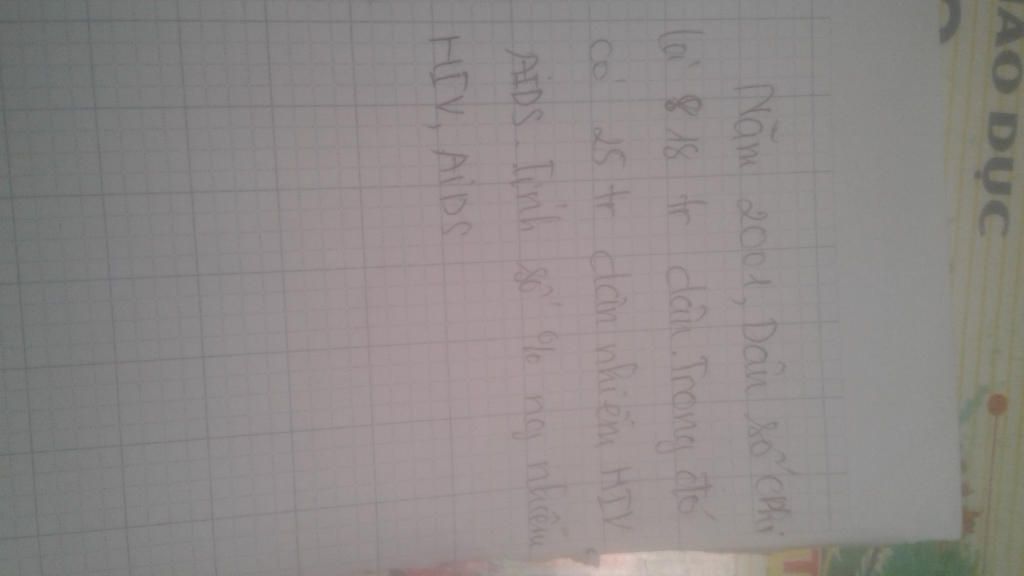 Năm 2001, Dân số Chi
là 818 tr dân. Trong đó
có 25 tr dân nhiễm HIV
AiDS. Tính số % ng nhiễm
HIV, AiDS
ÁO DỤC